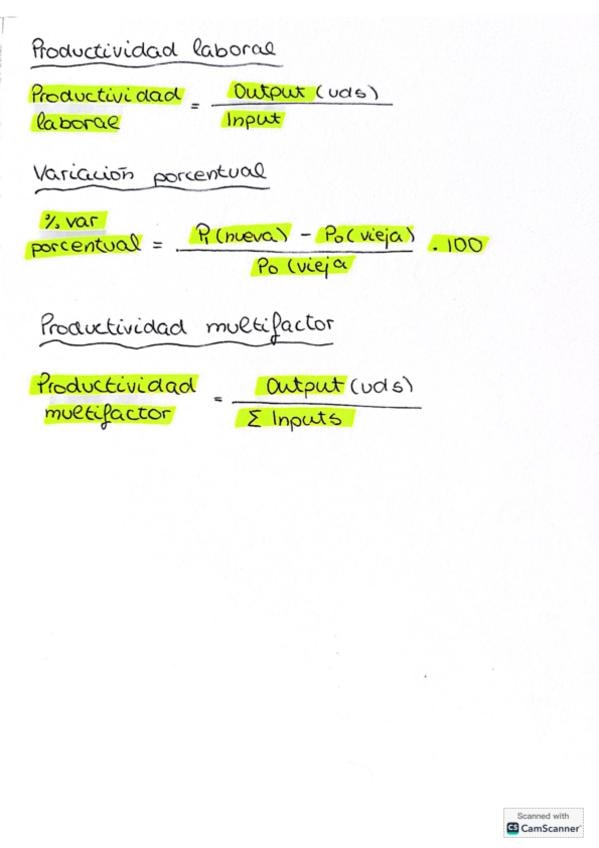 Productividad laboral
Productividad laboral = Output (uds) / Input
Variación porcentual
% var porcentual = P₁ (nueva) - Po (vieja) / Po (vieja . 100
Productividad multifactor
Productividad multifactor = Output (uds) / Σ Inputs
Scanned with
CS CamScanner